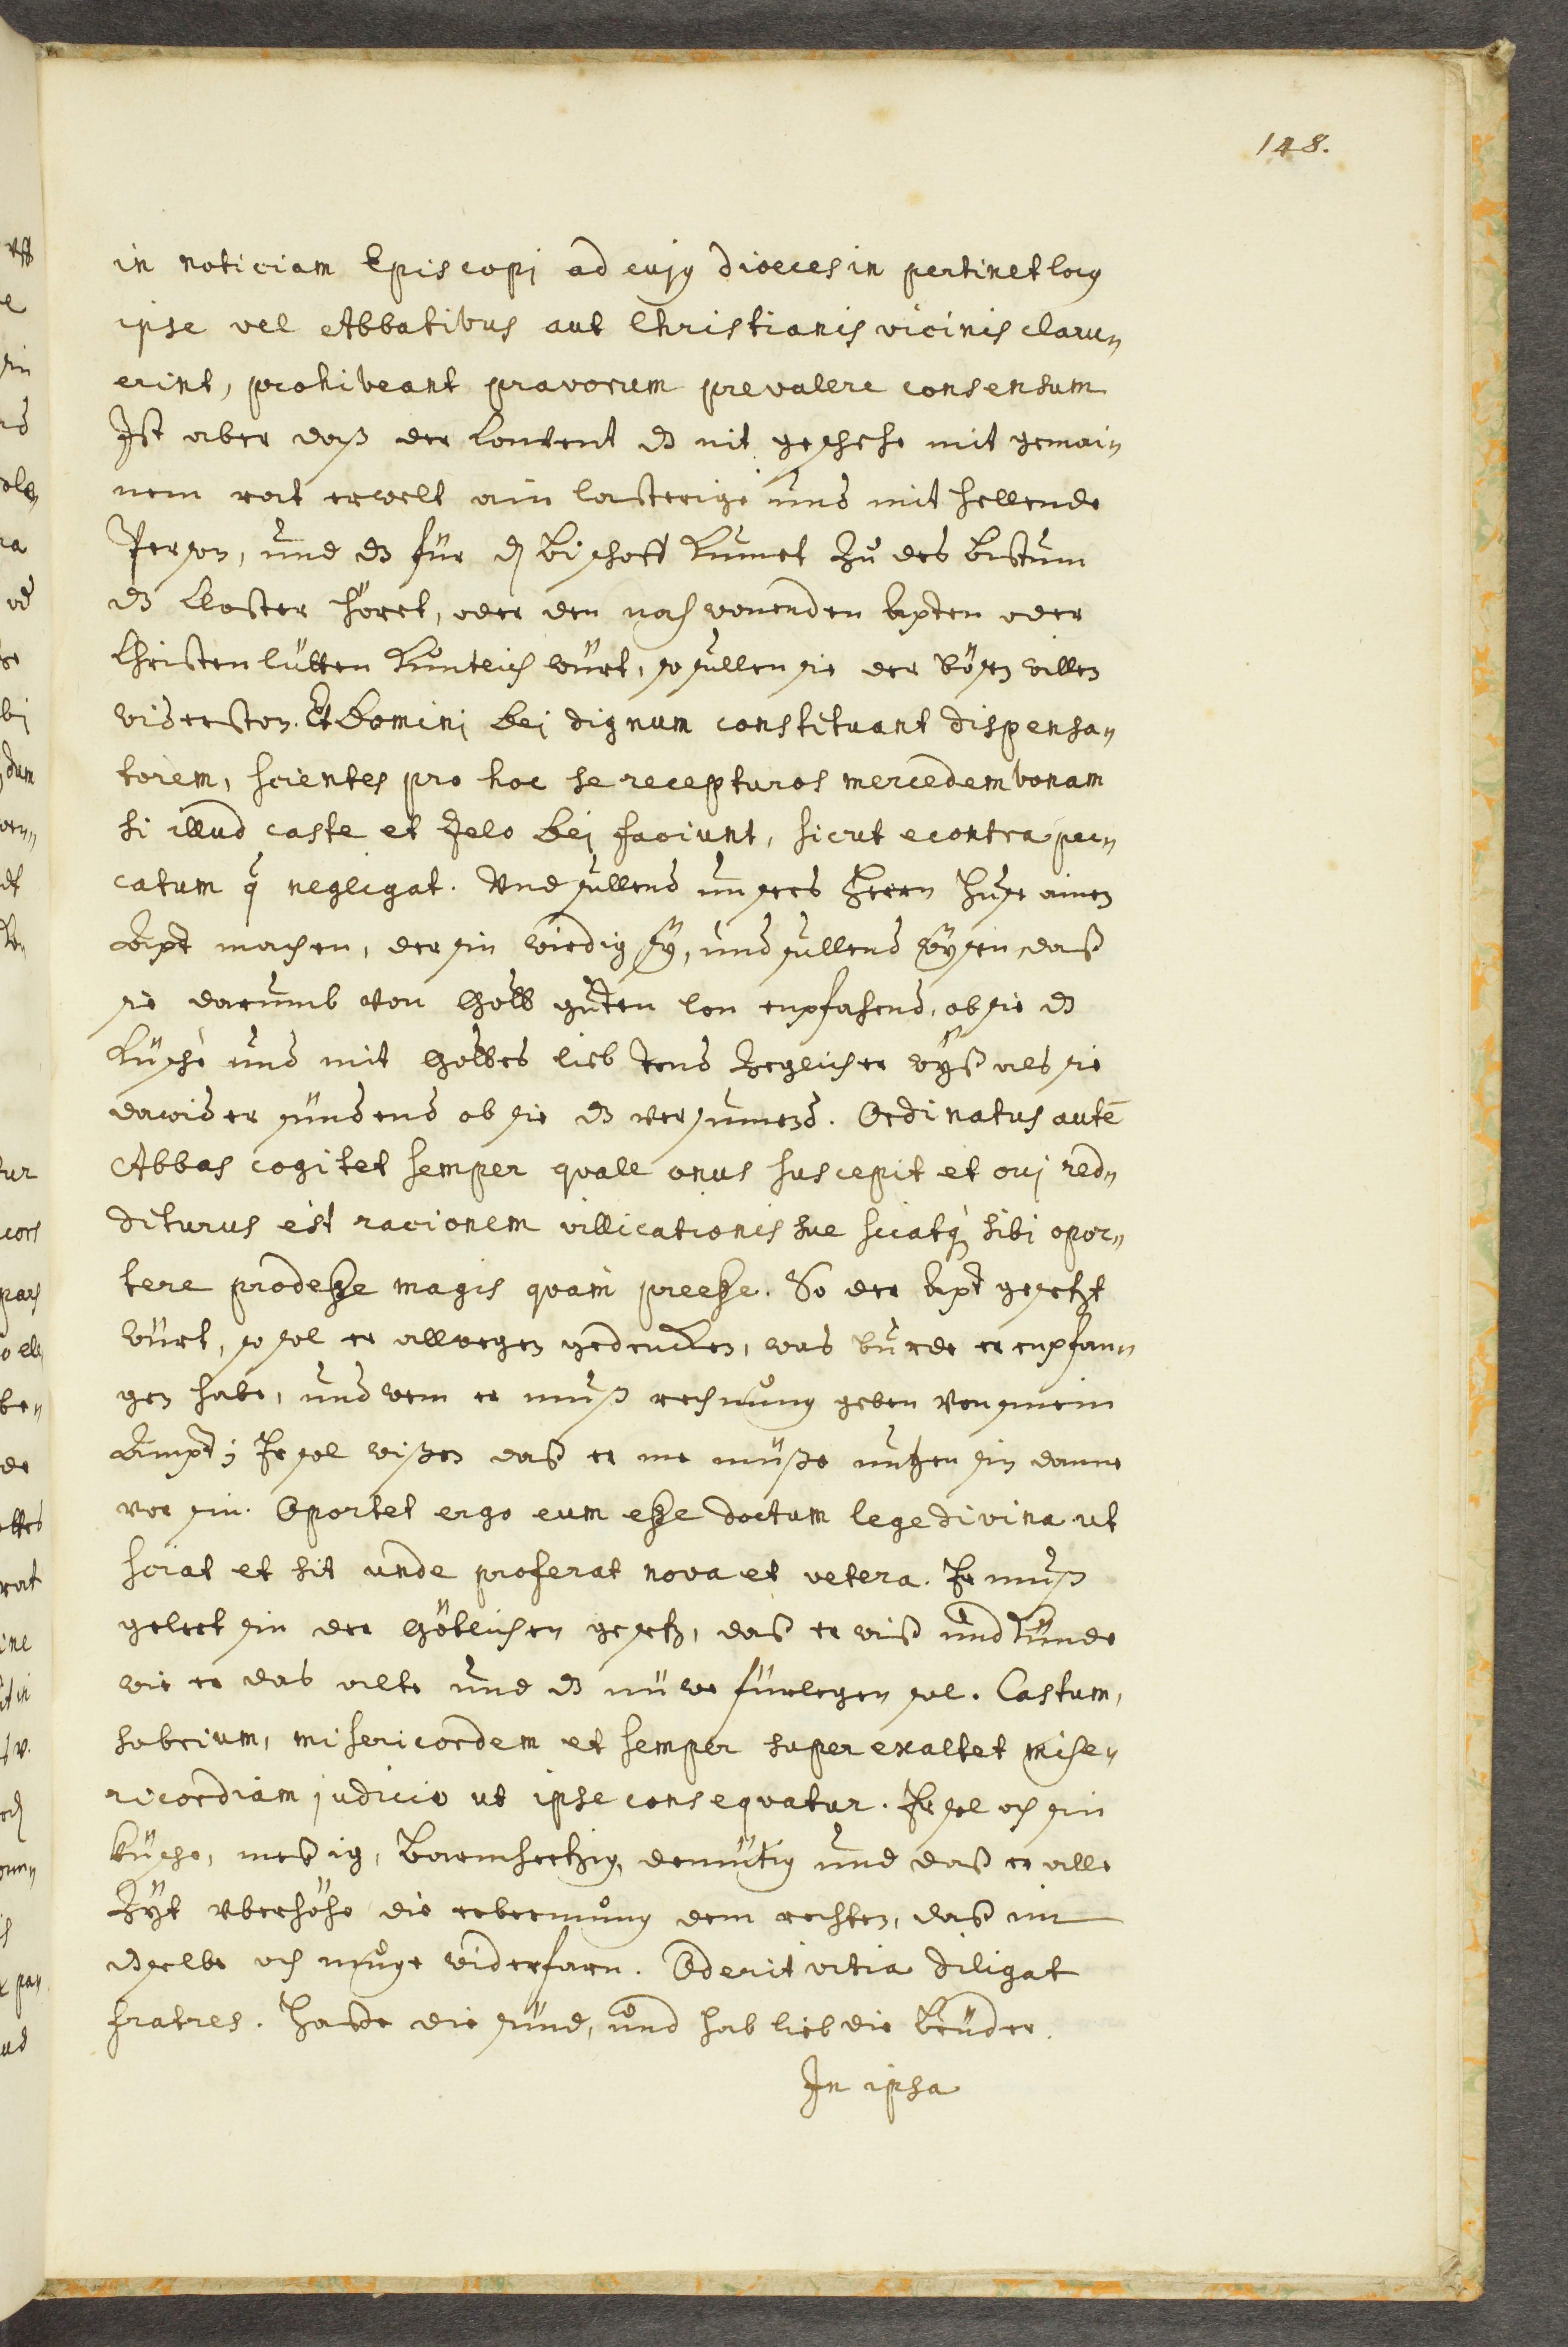 148.
in noticiam Episcopi ad cujus dioecesin pertinet locus
ipse vel Abbatibus aut Christianis vicinis claru„
erint, prohibeant pravorum prevalere consensum
Ist aber daß der Convent dz nit geschehe mit gemai„
nem rat erwelt ain lasterige und mit hellende
Person, und dz für den Bischoff kumet zů des Bistum
dz Closter höret, oder den nach wonenden äpten oder
Christenlütten kuntlich würt, so sullen sie der bösen willen
widerston. Et Domini Dei dignum constituant dispensa„
torem, scientes pro hoc se recepturos mercedem bonam
si illud caste et Zelo Dei faciunt, sicut econtra pec„
catum si negligat. Und sullend unsers Herrn Huse ainen
Apt machen, der sin wirdig sÿ, und sullend wÿsen, daß
sie darumb von Gott gůten lon enpfahend, ob sie dz
küsche und mit Gottes lieb tend Zeglicher wÿß als sie
dawider sündend ob sie dz versument. Ordinatus autē
Abbas cogitet semper quale onus suscepit et cui red„
diturus est racionem villicationis sue sciatq́ sibi opor„
tere prodesse magis quam preesse. So der Apt gesetzt
würt, so sol er allwegen gedencken, was burde er enpfan„
gen habe, und wem er muß rechnung geben von sinem
Ampt; Er sol wißen daß er me müße nutzen sin danne
vor sin. Oportet ergo eum esse doctum lege divina ut
sciat et sit unde proferat nova et vetera. Er muß
gelert sin der Götlichen gesetz, daß er wiß und künde
wie er das alte und dz nüwe fürlegen sol. Castum,
sobrium, misericordem et semper superexaltet mise„
ricordiam judicio ut ipse consequatur. Er sol och sin
küsche, messig, Barmhertzig, demütig und daß er alle
Zÿt uberhöhe die erbermung dem rechten, daß im
dzselbe och muge widerfarn. Oderit vitia diligat
fratres. Hasse die sünd, und hab lieb die Brüder.
In ipsa